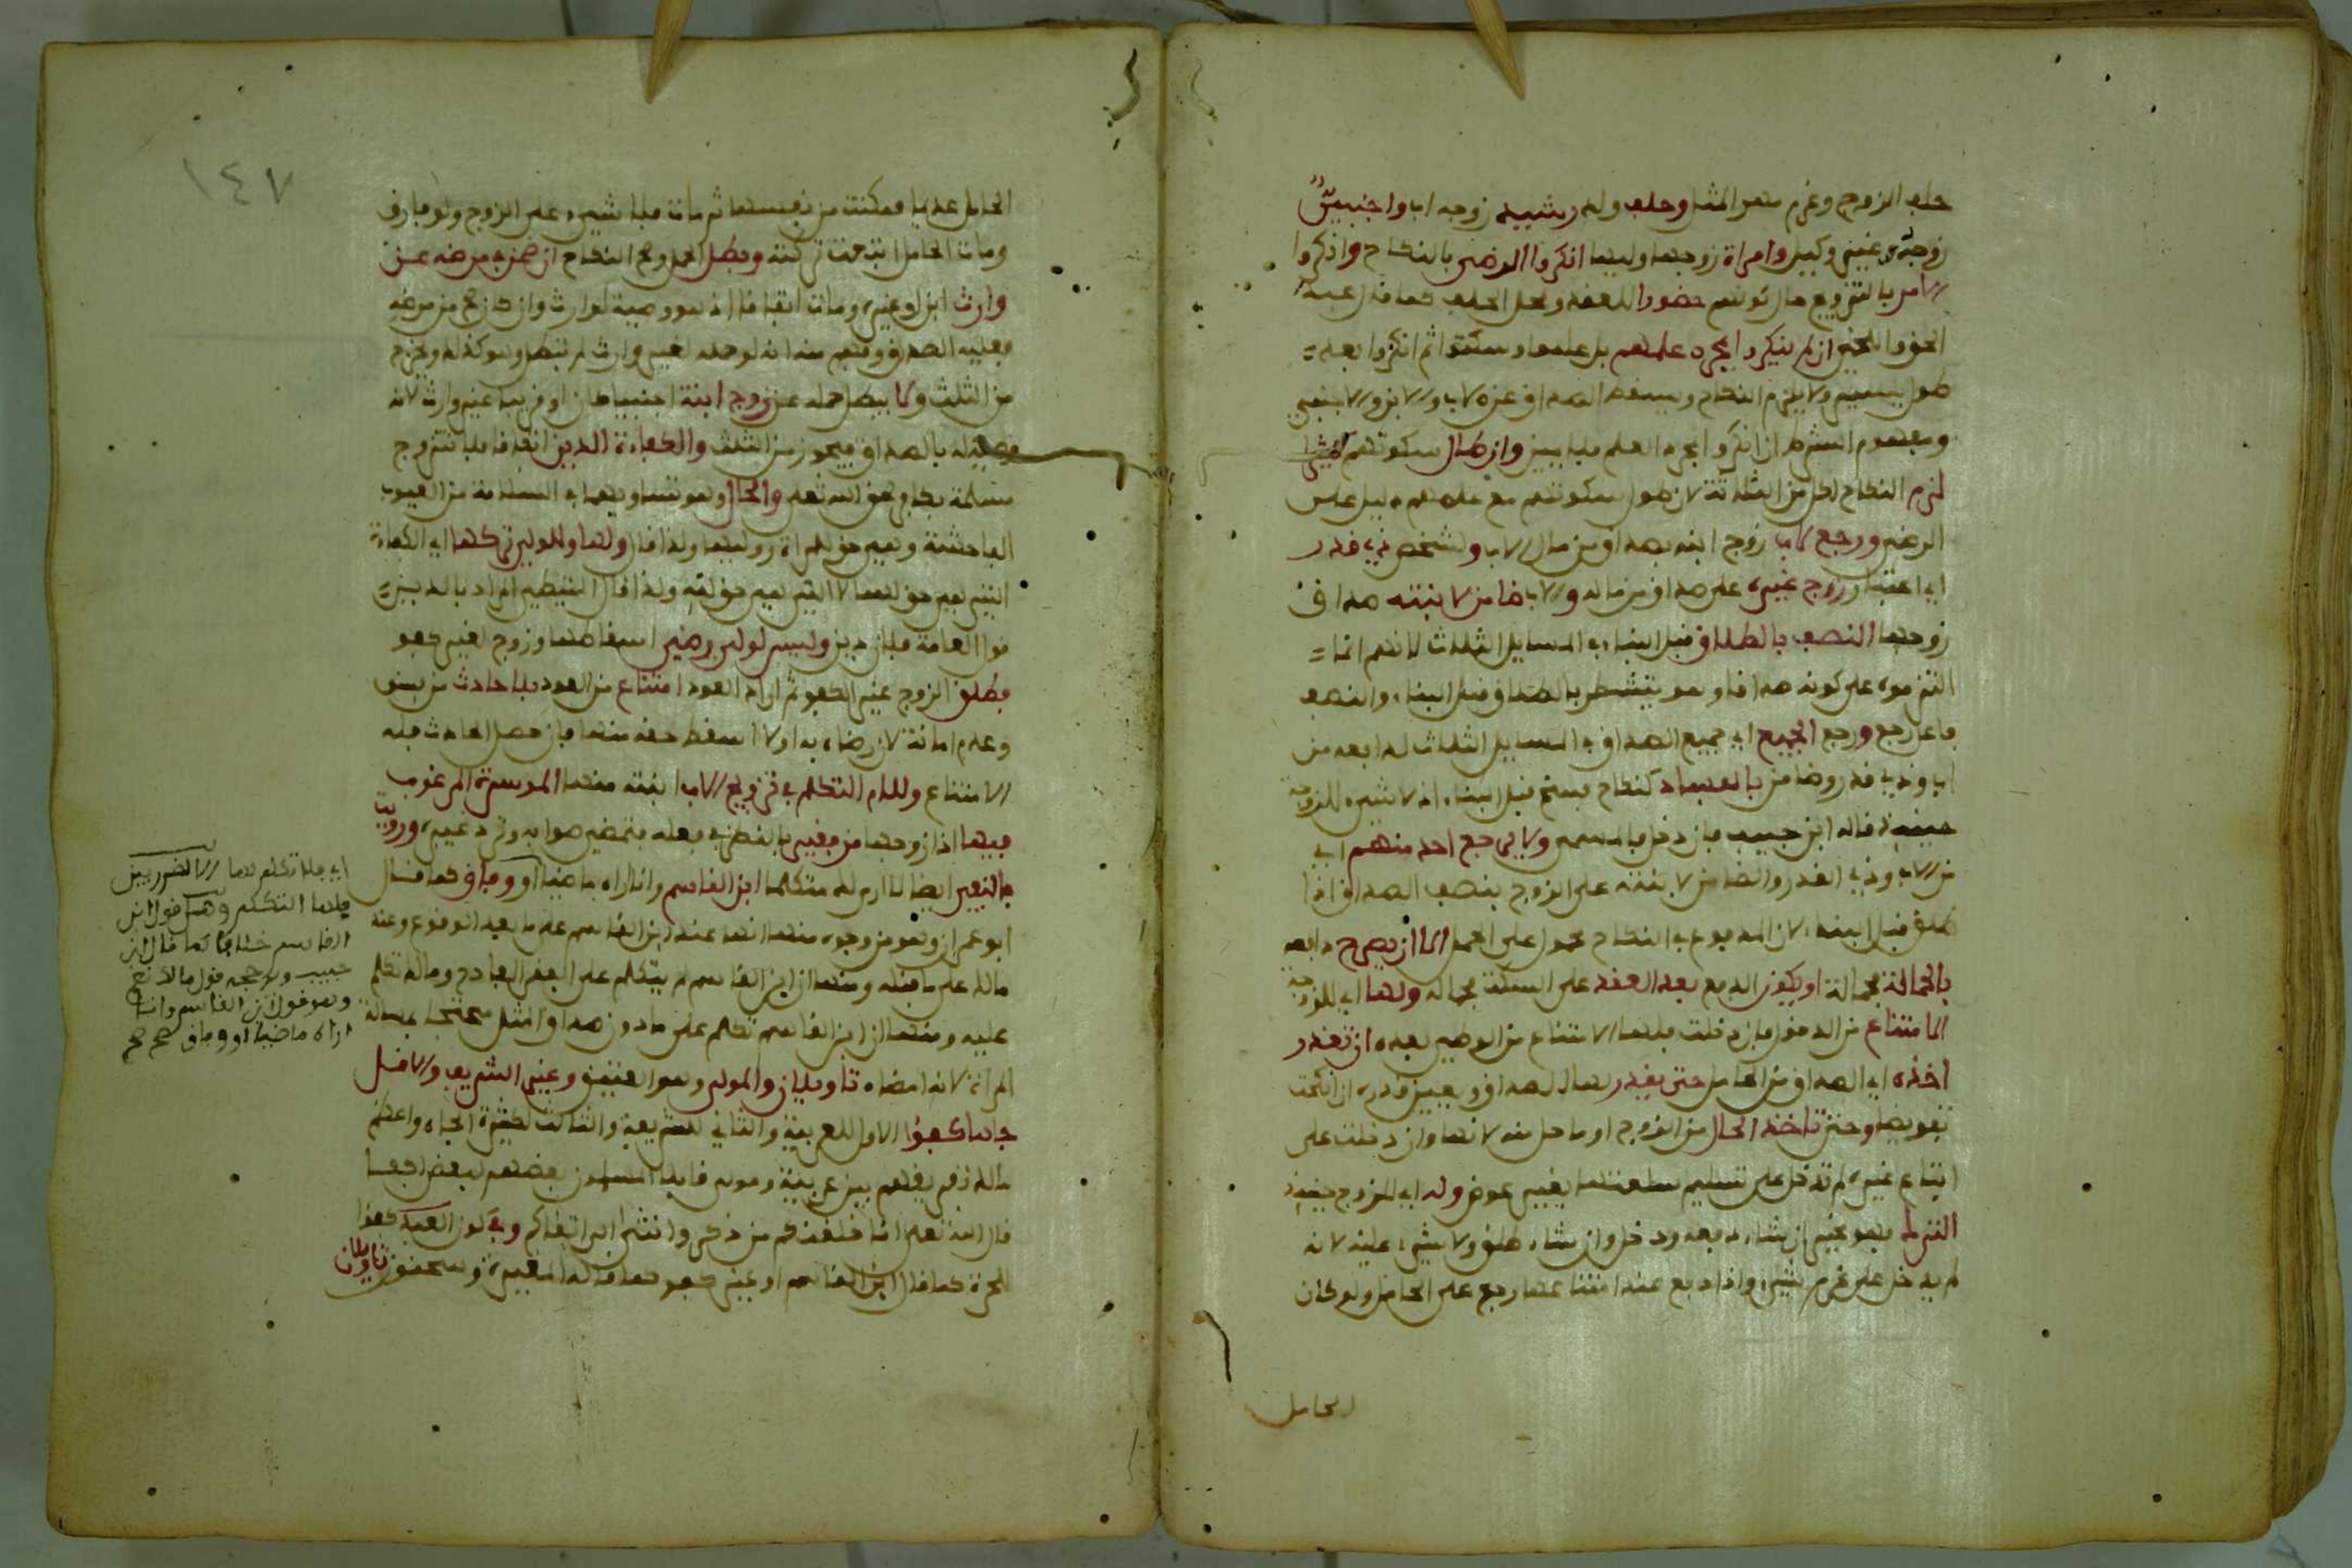 حلف الزوج وغرم مهر المثل وحلف وله رشيد زوجه اب واجنبي
زوجه غيني وكيل وامراة زوجها وليها انكروا الرضى بالنكاح واذكروا
الامر بالتزويج حال كونهم حضورا للعقد ومحل الحلف كما قال عبد
الحق واللخمي ان لم ينكروا بمجرد علمهم بل علموا وسكتوا ثم انكروا بعد
طول يسير ولا يلزم النكاح ويسقط الصداق عن الاب والابن والاجنبي
ومفهوم الشرط ان انكروا بمجرد العلم فلا يمين وان طال سكوتهم كثيرا
لزم النكاح لكل من الثلاثة لان طول سكوتهم مع علمهم دليل على
الرضى ورجع لاب زوج ابنه بصداق من مال الاب ولشخص ذي قدر
اي اعتبار زوج غيره على صداق من ماله ولاب ضامن لابنته صداق
زوجها النصف بالطلاق قبل البناء في المسايل الثلاث لانهم انما
التزموه على كونه صداقا وهو يتشطر بالطلاق قبل البناء والنصف
فاعل رجع ورجع الجميع اي جميع الصداق في المسايل الثلاث لدافعه من
اب وذي قدر وضامن بالفساد كنكاح فسخ قبل البناء اذ لا شيء للزوجة
حينئذ قاله ابن حبيب فان دخل فالمسمى ولا يرجع احد منهم اي
من الاب وذي القدر والضامن لابنته على الزوج بنصف الصداق اذا
طلق قبل البناء لان المدفوع في النكاح محمول على الحمل الا ان يصرح دافعه
بالحمالة فحمالة او يكون الدفع بعد العقد على السكت فحمالة ولها اي للزوجة
الامتناع من الدخول فان دخلت فلها الامتناع من الوطء بعده ان تعذر
اخذه اي الصداق من الحامل حتى يقدر لها الصداق ويعين قدره ان انكحت
تفويضا وحتى تاخذ الحال من الزوج او ما حل منه لانها وان دخلت على
اتباع غيره لم تدخل على تسليم سلعتها بغير عوض وله اي للزوج حينئذ
الترك فهو مخير ان شاء دفعه ودخل وان شاء طلق ولا شيء عليه لانه
لم يدخل على غرم شيء واذا دفع عند امتناعها رجع على الحامل ولو كان
الحامل
١٤٧
الحامل عديما فمكنت من نفسها ثم مات فلا شيء على الزوج ولو فارق
ومات الحامل اتبعت تركته وبطل الحمل وصح النكاح ان ضمن في مرضه عن
وارث ابن او غيره ومات اتفاقا اذ هو وصية لوارث وان كان صح من مرضه
فعليه الصداق وفهم منه انه لو حمله لغير وارث لم تبطل وهو كذلك ويخرج
من الثلث ولا يبطل حمله عن زوج ابنة اجنبيا كان او قريبا غير وارث لانه
وصية له بالصداق فيجوز من الثلث والكفاءة الدين اتفاقا فلا تتزوج
مسلمة بكافر لحق الله تعلى والحال وهو تساويهما في السلامة من العيوب
الفاحشة وهي حق للمراة ووليها ولذا قال ولها وللولي تركها اي الكفاءة
التي هي حق لهما لا التي هي حق لله ولذا قال البساطي المراد بالدين
هو العامة فلان دين وليس لولي رضي اسقاطها وزوج لغير كفو
فطلق الزوج غير الكفو ثم اراد العود امتناع من العود بلا حادث من فسق
وعدم امانة لان رضاه به اولا اسقط حقه منها فان حصل الحادث فله
الامتناع وللام التكلم في تزويج الاب ابنته منها الموسرة المرغوب
فيها اذا زوجها من فقير بالنظر في فعله فتمضي صوابه وترد غيره ورويت
بالنفي ايضا لا ارى لك متكلما ابن القاسم وانا اراه ماضيا الا وفاق كما قال
ابو عمران وهو من وجوه منها انها عند ابن القاسم على ما بعد الوقوع وعند
مالك على ما قبله ومنها ان ابن القاسم لم يتكلم على الفقر الفادح ومالك تكلم
عليه ومنها ان ابن القاسم تكلم على ما دون صداق المثل محتجا بمسالة
المراة لانه امضاه تاويلان والمولى وهو العتيق وغير الشريف والاقل
جاها كفؤا الاول للعربية والثاني للشريفة والثالث لكثيرة الجاه واعظم
مالك تفريقهم بين عربية ومولى قائلا المسلمون بعضهم لبعض اكفاء
قال الله تعلى انا خلقنكم من ذكر وانثى الى اتقاكم وفي كون العبد كفؤا
للحرة كما قال ابن القاسم او غير كفو كما قاله المغيرة وسحنون تاويلان
اي فلا تكلم لها الا لضرر بين
فلها التكلم وهل قول ابن
القاسم خلافا كما قال ابن
حبيب ورجحه قول مالك نعم
وهو قول ابن القاسم وانا
اراه ماضيا او وفاق صح صح